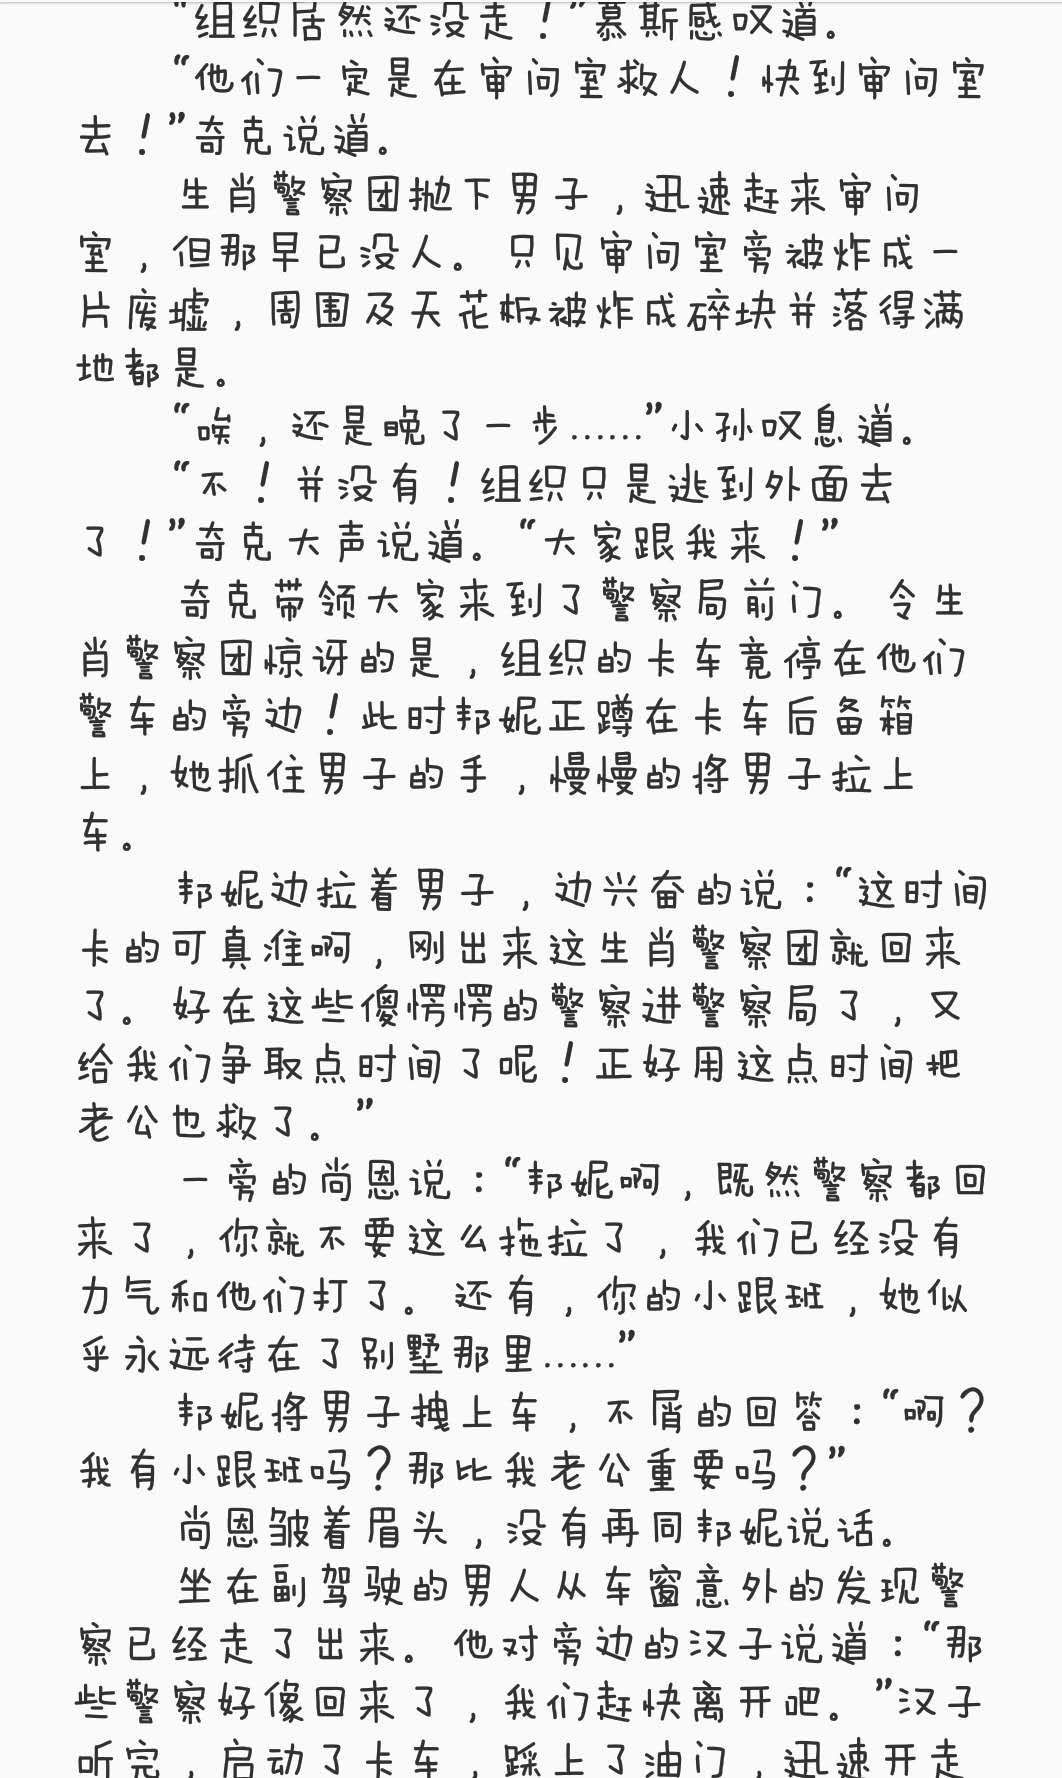 “组织居然还没走！”慕斯感叹道。
“他们一定是在审问室救人！快到审问室
去！”奇克说道。
生肖警察团抛下男子，迅速赶来审问
室，但那早已没人。只见审问室旁被炸成一
片废墟，周围及天花板被炸成碎块并落得满
地都是。
“唉，还是晚了一步……”小孙叹息道。
“不！并没有！组织只是逃到外面去
了！”奇克大声说道。“大家跟我来！”
奇克带领大家来到了警察局前门。令生
肖警察团惊讶的是，组织的卡车竟停在他们
警车的旁边！此时邦妮正蹲在卡车后备箱
上，她抓住男子的手，慢慢的将男子拉上
车。
邦妮边拉着男子，边兴奋的说：“这时间
卡的可真准啊，刚出来这生肖警察团就回来
了。好在这些傻愣愣的警察进警察局了，又
给我们争取点时间了呢！正好用这点时间把
老公也救了。”
一旁的尚恩说：“邦妮啊，既然警察都回
来了，你就不要这么拖拉了，我们已经没有
力气和他们打了。还有，你的小跟班，她似
乎永远待在了别墅那里……”
邦妮将男子拽上车，不屑的回答：“啊？
我有小跟班吗？那比我老公重要吗？”
尚恩皱着眉头，没有再同邦妮说话。
坐在副驾驶的男人从车窗意外的发现警
察已经走了出来。他对旁边的汉子说道：“那
些警察好像回来了，我们赶快离开吧。”汉子
听完，启动了卡车，踩上了油门，迅速开走